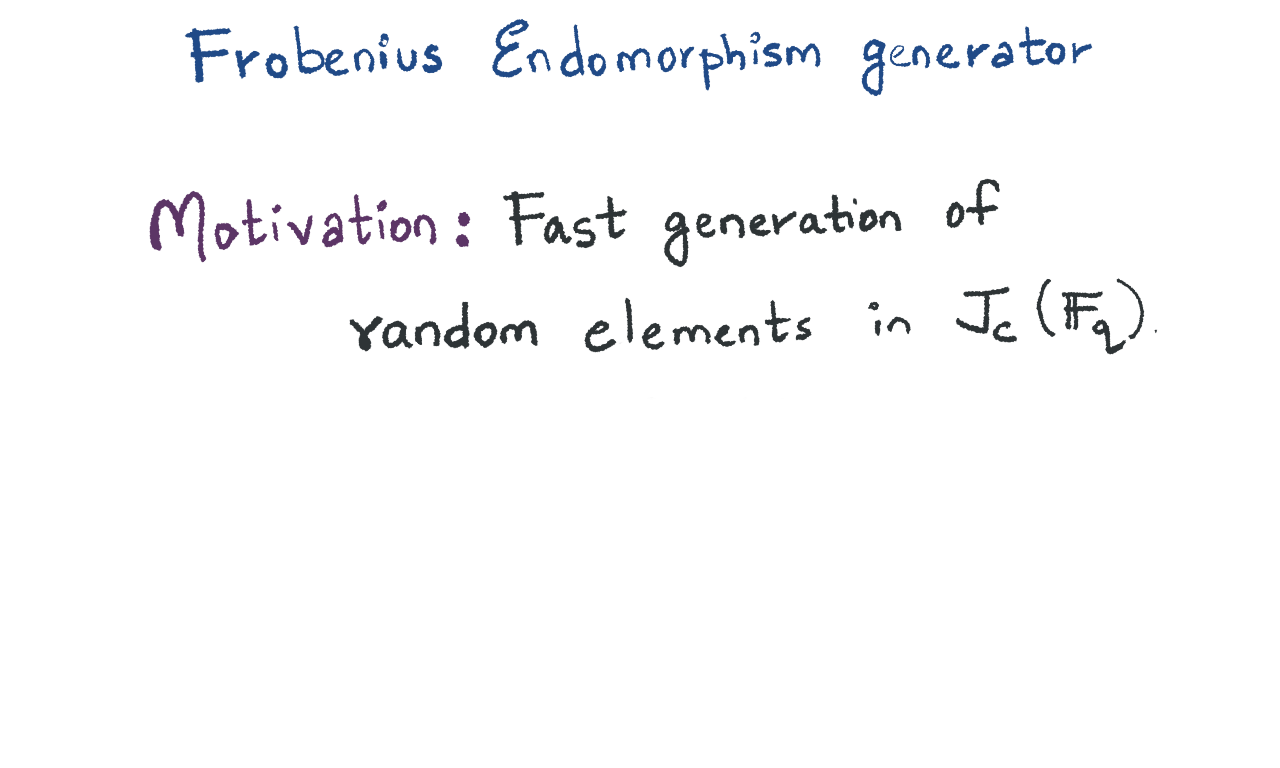 Frobenius Endomorphism generator
Motivation: Fast generation of
random elements in J_C(𝔽_q).